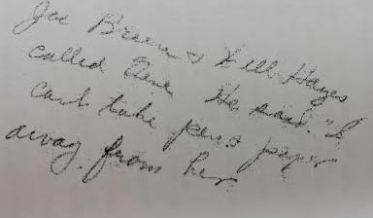 Joe Breen & Will Hayes
called Gene He said. "I
can't take pen & paper
away from her